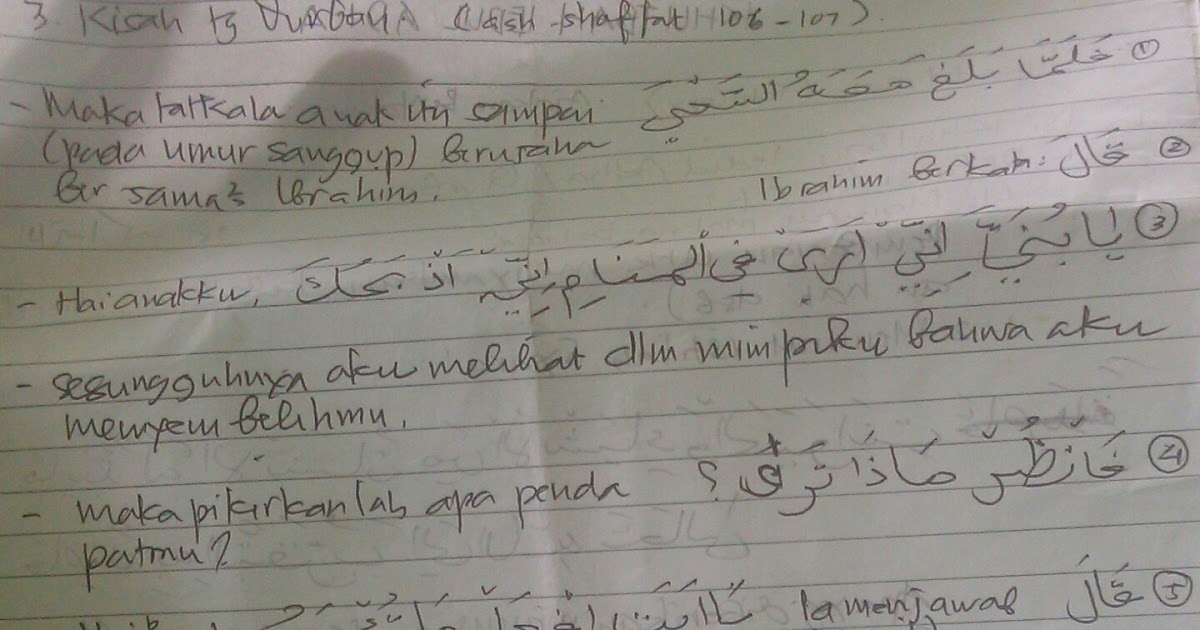 3. Kisah tg Qurban (Ash-shaffat 106-107).
① فَلَمَّا بَلَغَ مَعَهُ السَّعْيَ
- Maka tatkala anak itu sampai
(pada umur sanggup) berusaha
bersama² Ibrahim.
② قَالَ Ibrahim berkata:
③ يَا بُنَيَّ إِنِّي أَرَى فِي الْمَنَامِ أَنِّي أَذْبَحُكَ
- Hai anakku,
- sesungguhnya aku melihat dlm mimpiku bahwa aku
menyembelihmu.
④ فَانْظُرْ مَاذَا تَرَى؟
- maka pikirkanlah apa penda
patmu?
⑤ قَالَ Ia menjawab